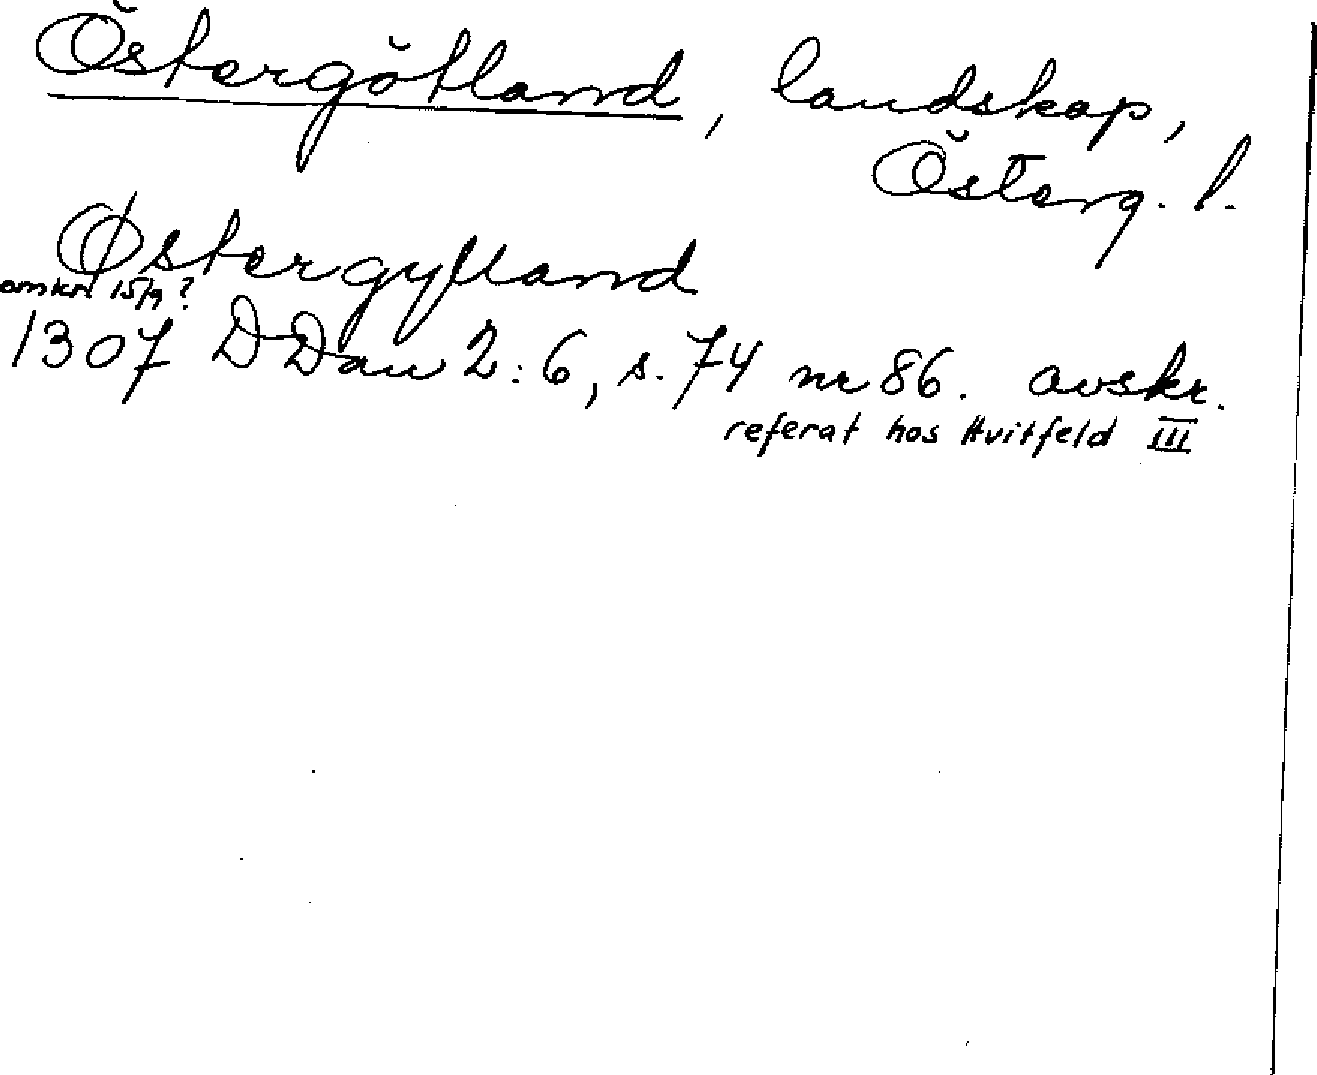 Östergötland, landskap,
Österg. l.
Østergylland
omkr. 15/9?
1307 DDan 2:6, s. 74 nr 86. avskr.
referat hos Hvitfeld III